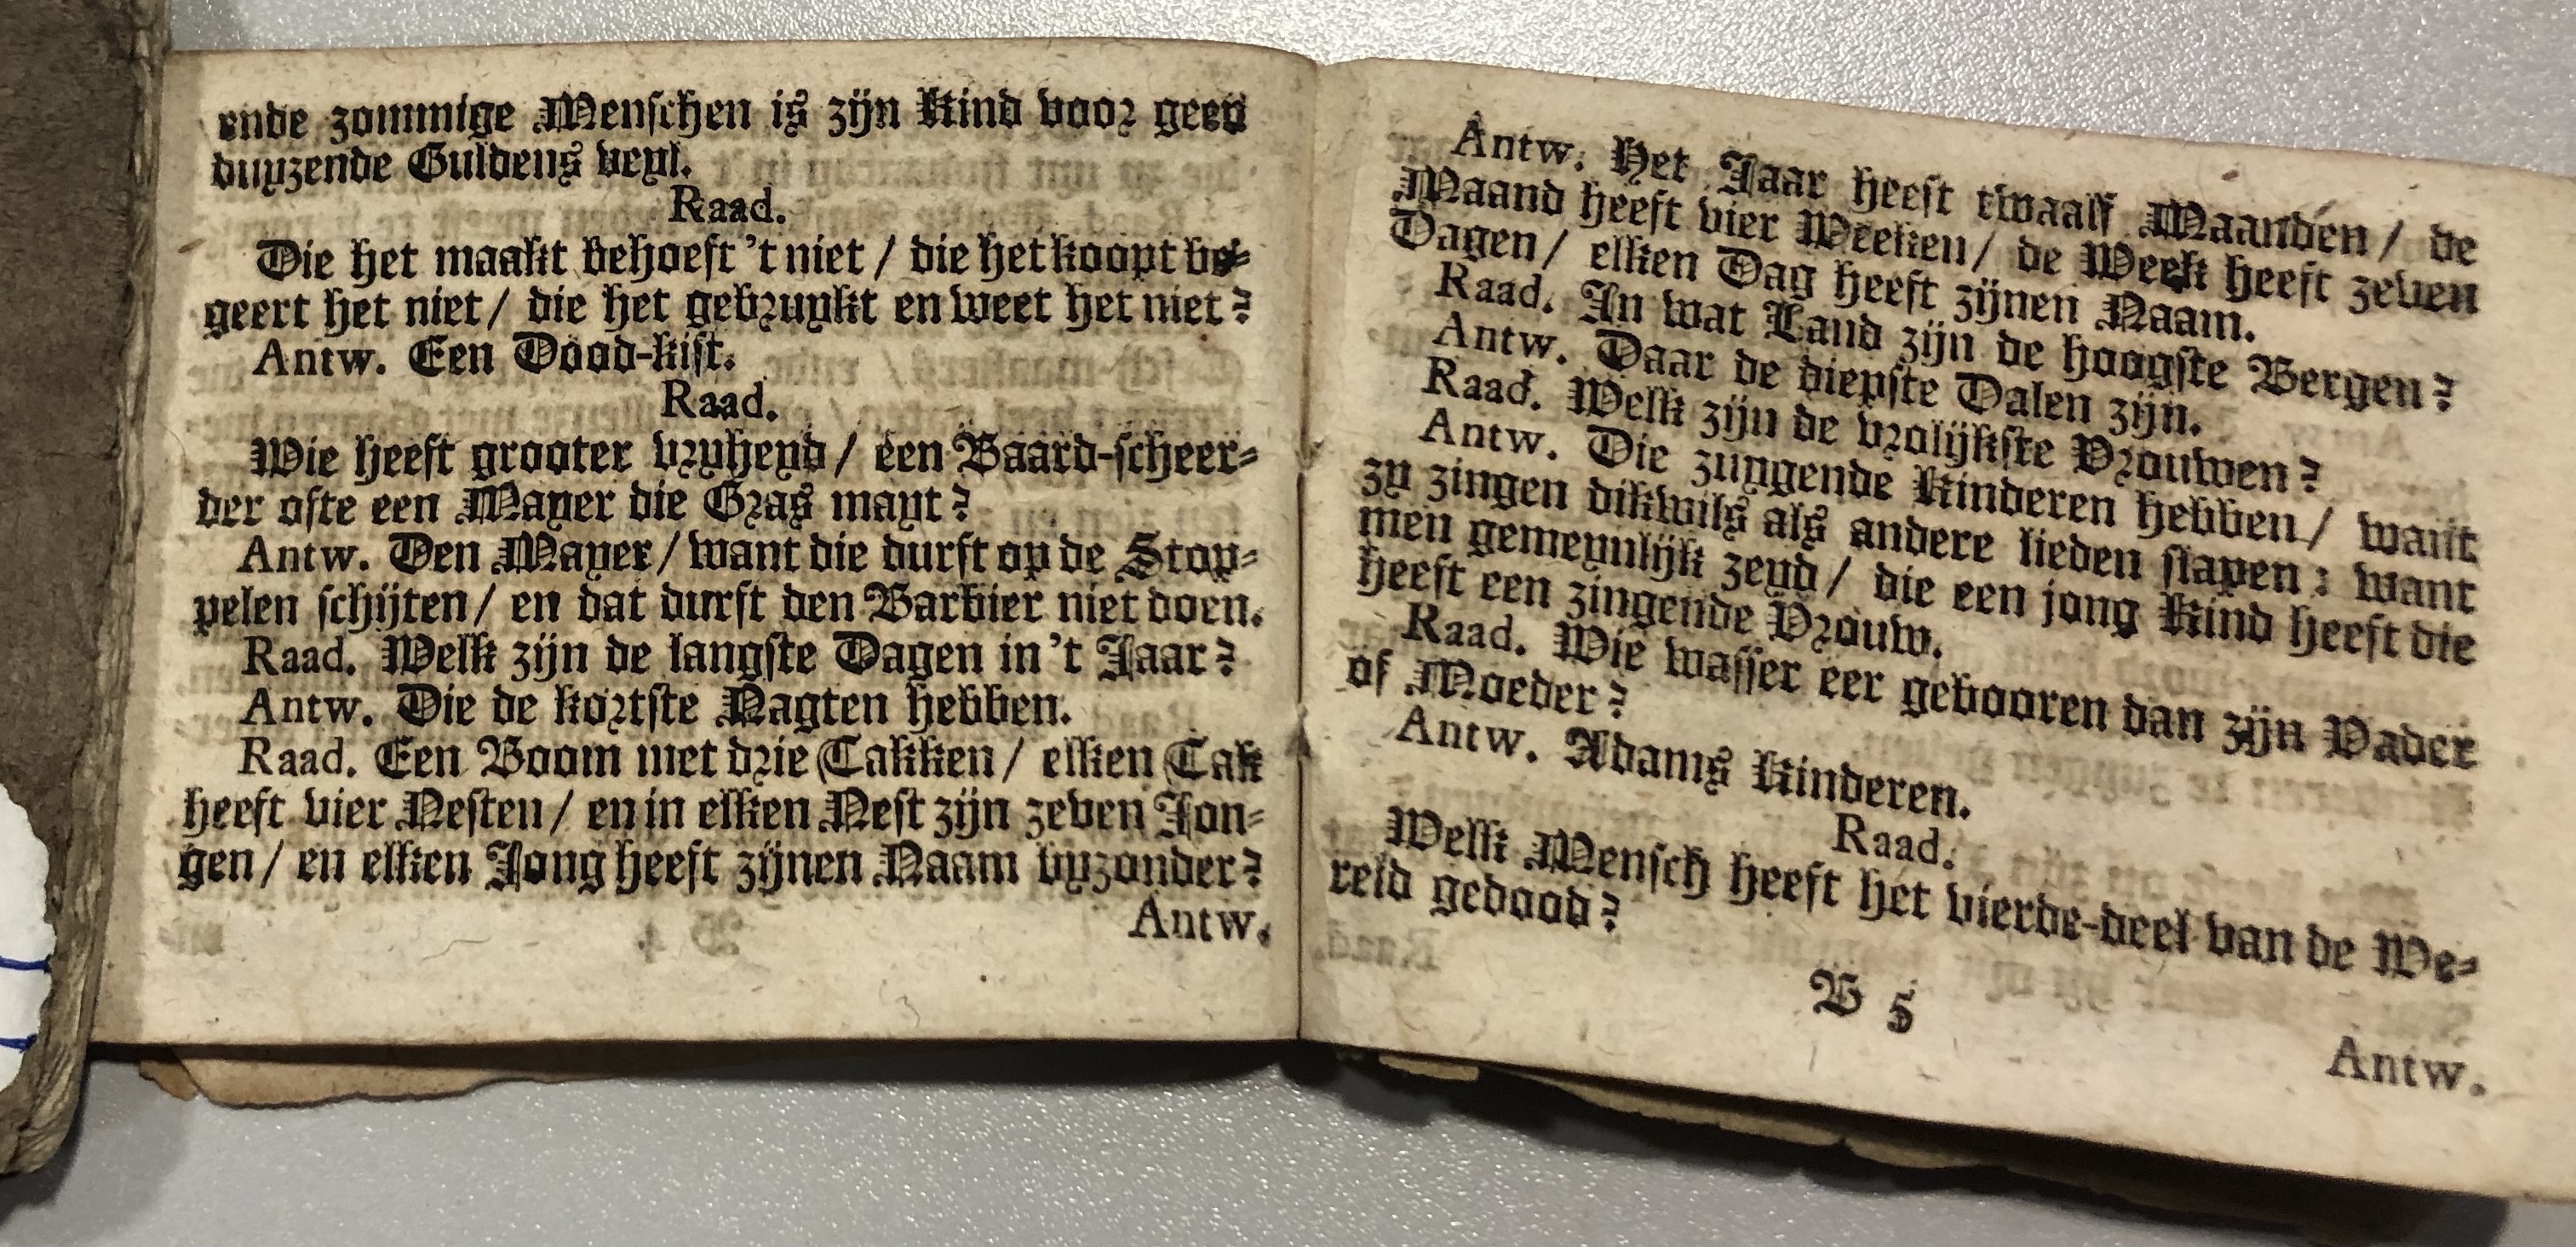 ende zommige Menschen is zijn Kind voor geen
duyzende Guldens veyl.
Raad.
Die het maakt behoeft 't niet / die het koopt be-
geert het niet / die het gebruykt en weet het niet?
Antw. Een Dood-kist.
Raad.
Wie heeft grooter vryheyd / een Baard-scheer-
der ofte een Mayer die Gras mayt?
Antw. Den Mayer / want die durft op de Stop-
pelen schijten / en dat durft den Barbier niet doen.
Raad. Welk zijn de langste Dagen in 't Jaar?
Antw. Die de kortste Nagten hebben.
Raad. Een Boom met drie Takken / elken Tak
heeft vier Nesten / en in elken Nest zijn zeven Jon-
gen / en elken Jong heeft zijnen Naam byzonder?
Antw.
Antw. Het Jaar heeft twaalf Maanden / de
Maand heeft vier Weeken / de Week heeft zeven
Dagen / elken Dag heeft zijnen Naam.
Raad. In wat Land zijn de hoogste Bergen?
Antw. Daar de diepste Dalen zijn.
Raad. Welk zijn de vrolijkste Vrouwen?
Antw. Die zuygende Kinderen hebben / want
zy zingen dikwils als andere lieden slapen: want
men gemeynlijk zeyd / die een jong Kind heeft die
heeft een zingende Vrouw.
Raad. Wie wasser eer gebooren dan zijn Vader
of Moeder?
Antw. Adams Kinderen.
Raad.
Welk Mensch heeft het vierde-deel van de We-
reld gedood?
B 5
Antw.